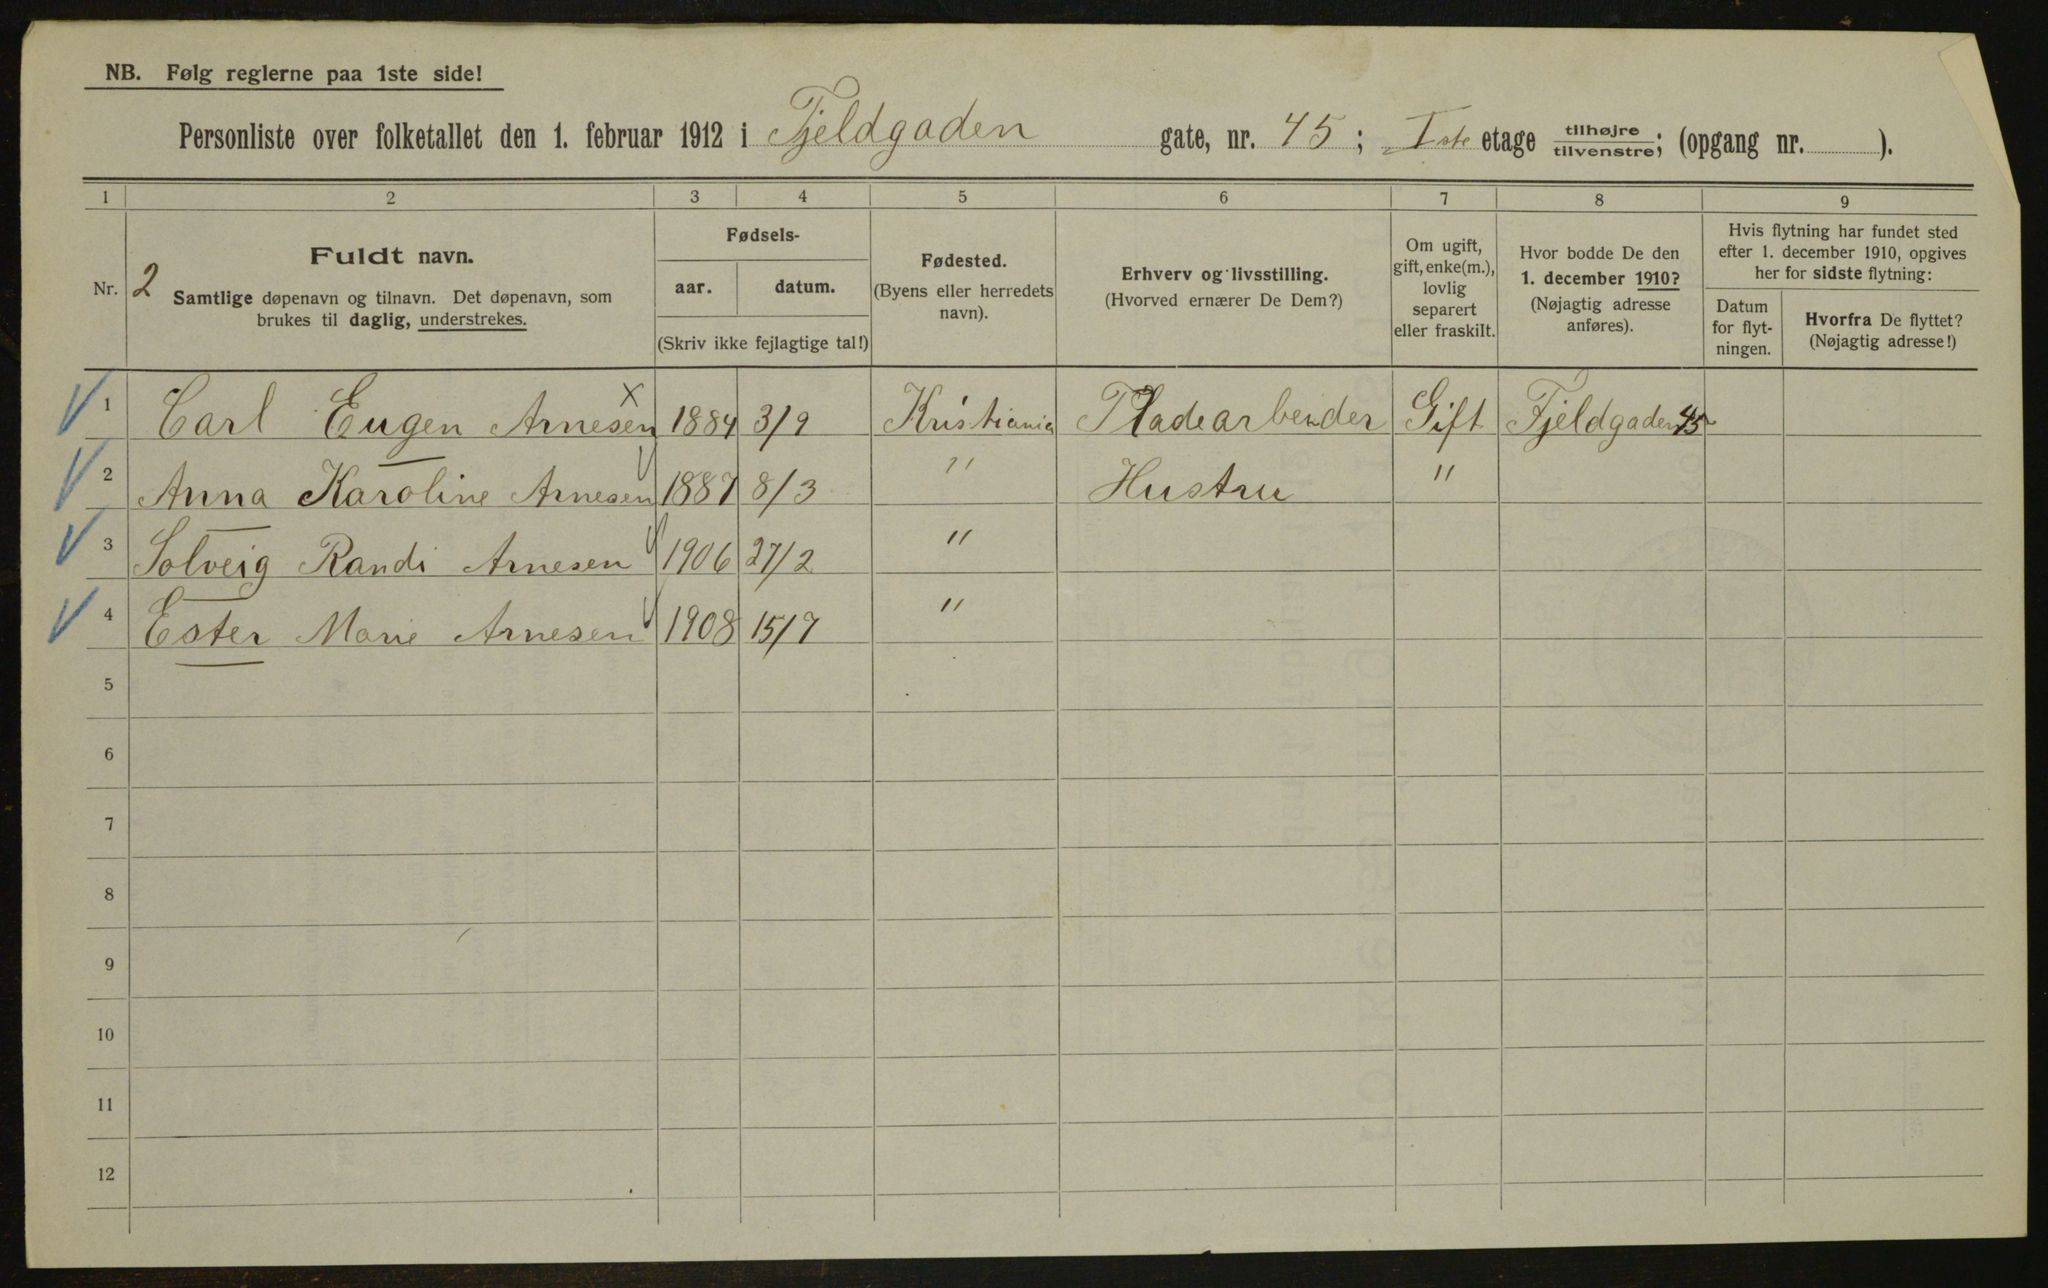 NB. Følg reglerne paa 1ste side!
Personliste over folketallet den 1. februar 1912 i Fjeldgaden gate, nr. 45; Iste etage tilhøjre tilvenstre; (opgang nr. ).
1 2 3 4 5 6 7 8 9
Nr. 2
Fuldt navn.
Samtlige døpenavn og tilnavn. Det døpenavn, som
brukes til daglig, understrekes.
Fødsels-
aar. datum.
(Skriv ikke fejlagtige tal!)
Fødested.
(Byens eller herredets
navn).
Erhverv og livsstilling.
(Hvorved ernærer De Dem?)
Om ugift,
gift, enke(m.),
lovlig
separert
eller fraskilt.
Hvor bodde De den
1. december 1910?
(Nøjagtig adresse
anføres).
Hvis flytning har fundet sted
efter 1. december 1910, opgives
her for sidste flytning:
Datum
for flyt-
ningen.
Hvorfra De flyttet?
(Nøjagtig adresse!)
1 Carl Eugen Arnesen x 1884 3/9 Kristiania Pladearbeider Gift Fjeldgaden 45
2 Anna Karoline Arnesen 1887 8/3 " Hustru "
3 Solveig Randi Arnesen 1906 27/2 "
4 Ester Marie Arnesen 1908 15/7 "
5
6
7
8
9
10
11
12